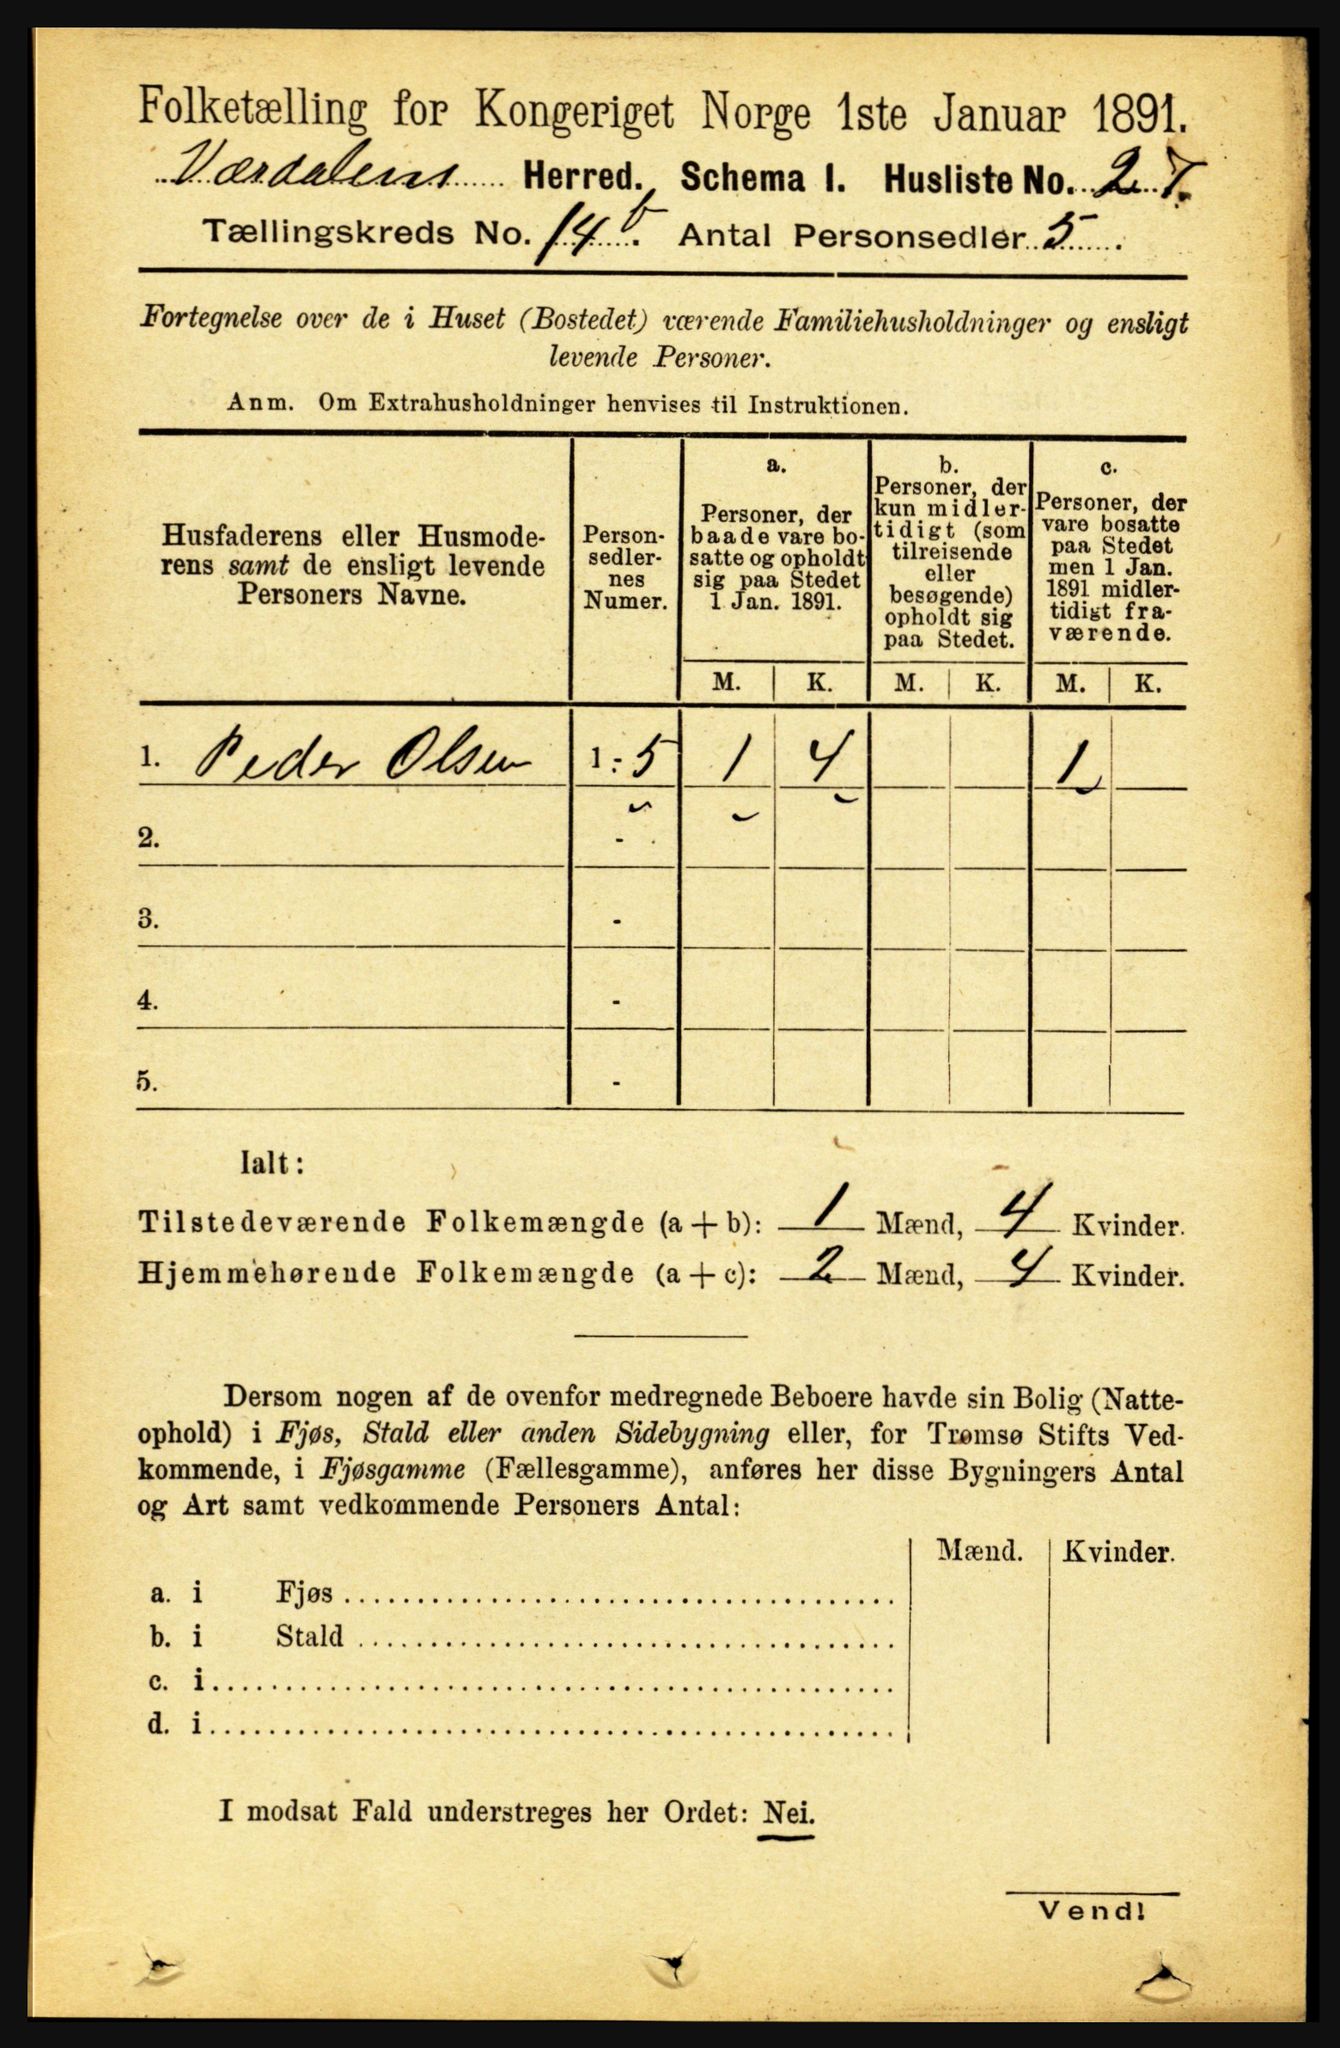 Folketælling for Kongeriget Norge 1ste Januar 1891.
Værdalens Herred. Schema I. Husliste No. 27.
Tællingskreds No. 14b. Antal Personsedler 5.
Fortegnelse over de i Huset (Bostedet) værende Familiehusholdninger og ensligt
levende Personer.
Anm. Om Extrahusholdninger henvises til Instruktionen.
Husfaderens eller Husmode-
rens samt de ensligt levende
Personers Navne.
Person-
sedler-
nes
Numer.
a.
Personer, der
baade vare bo-
satte og opholdt
sig paa Stedet
1 Jan. 1891.
b.
Personer, der
kun midler-
tidigt (som
tilreisende
eller
besøgende)
opholdt sig
paa Stedet.
c.
Personer, der
vare bosatte
paa Stedet
men 1 Jan.
1891 midler-
tidigt fra-
værende.
M. K. M. K. M. K.
1. Peder Olsen 1-5 1 4 1
2. -
3. -
4. -
5. -
Ialt:
Tilstedeværende Folkemængde (a + b): 1 Mænd, 4 Kvinder.
Hjemmehørende Folkemængde (a + c): 2 Mænd, 4 Kvinder.
Dersom nogen af de ovenfor medregnede Beboere havde sin Bolig (Natte-
ophold) i Fjøs, Stald eller anden Sidebygning eller, for Tromsø Stifts Ved-
kommende, i Fjøsgamme (Fællesgamme), anføres her disse Bygningers Antal
og Art samt vedkommende Personers Antal:
Mænd. Kvinder.
a. i Fjøs
b. i Stald
c. i
d. i
I modsat Fald understreges her Ordet: Nei.
Vend!